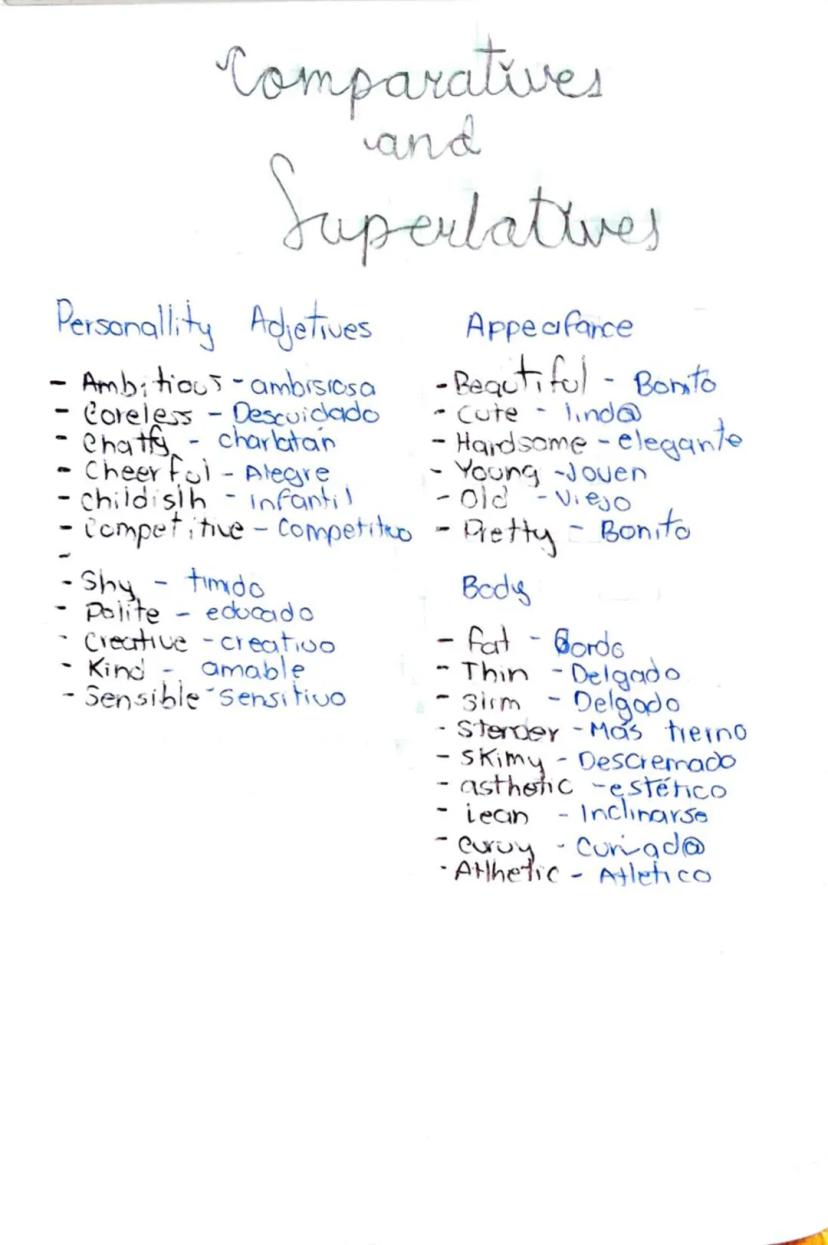 Comparatives
and
Superlatives
Personallity Adjetives
- Ambitious - ambisiosa
- Coreless - Descuidado
- Chatty - charlatán
- Cheerful - Alegre
- childislh - Infantil
- Competitive - Competitivo
-
- Shy - timido
- Polite - educado
- Creative - creativo
- Kind - amable
- Sensible - Sensitivo
Appearance
- Beautiful - Bonito
- Cute - lind@
- Handsome - elegante
- Young - Joven
- Old - Viejo
- Pretty - Bonito
Body
- Fat - Gordo
- Thin - Delgado
- Slim - Delgado
- Slender - Más tierno
- Skimy - Descremado
- asthetic - estético
- lean - Inclinarse
- Curvy - Curvad@
- Atlhetic - Atletico